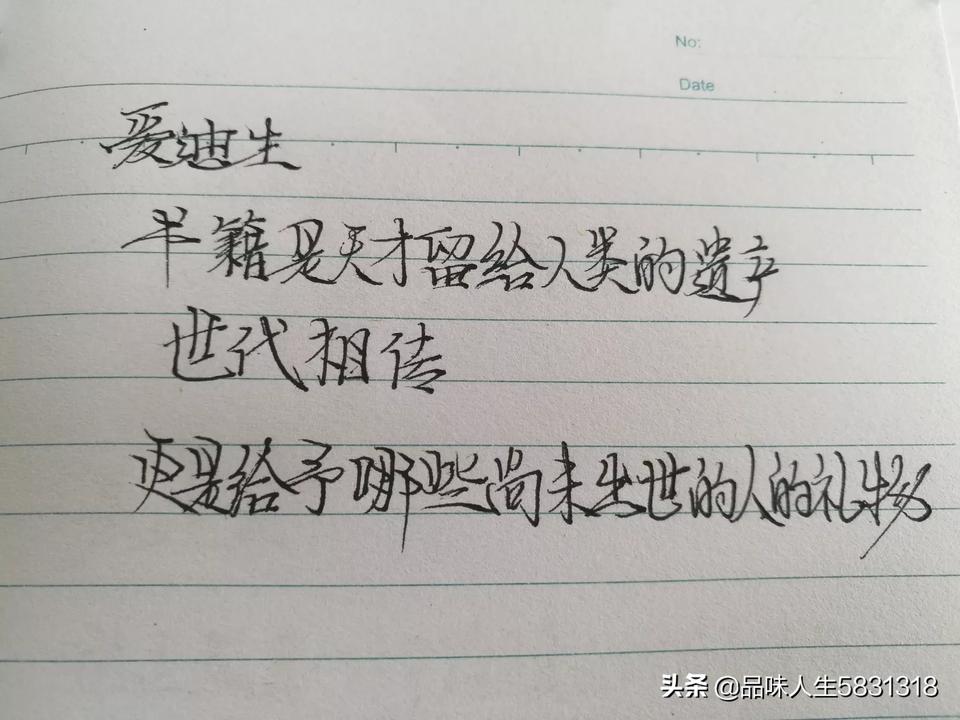 No:
Date
爱迪生
书籍是天才留给人类的遗产
世代相传
更是给予哪些尚未出世的人的礼物
头条 @品味人生5831318